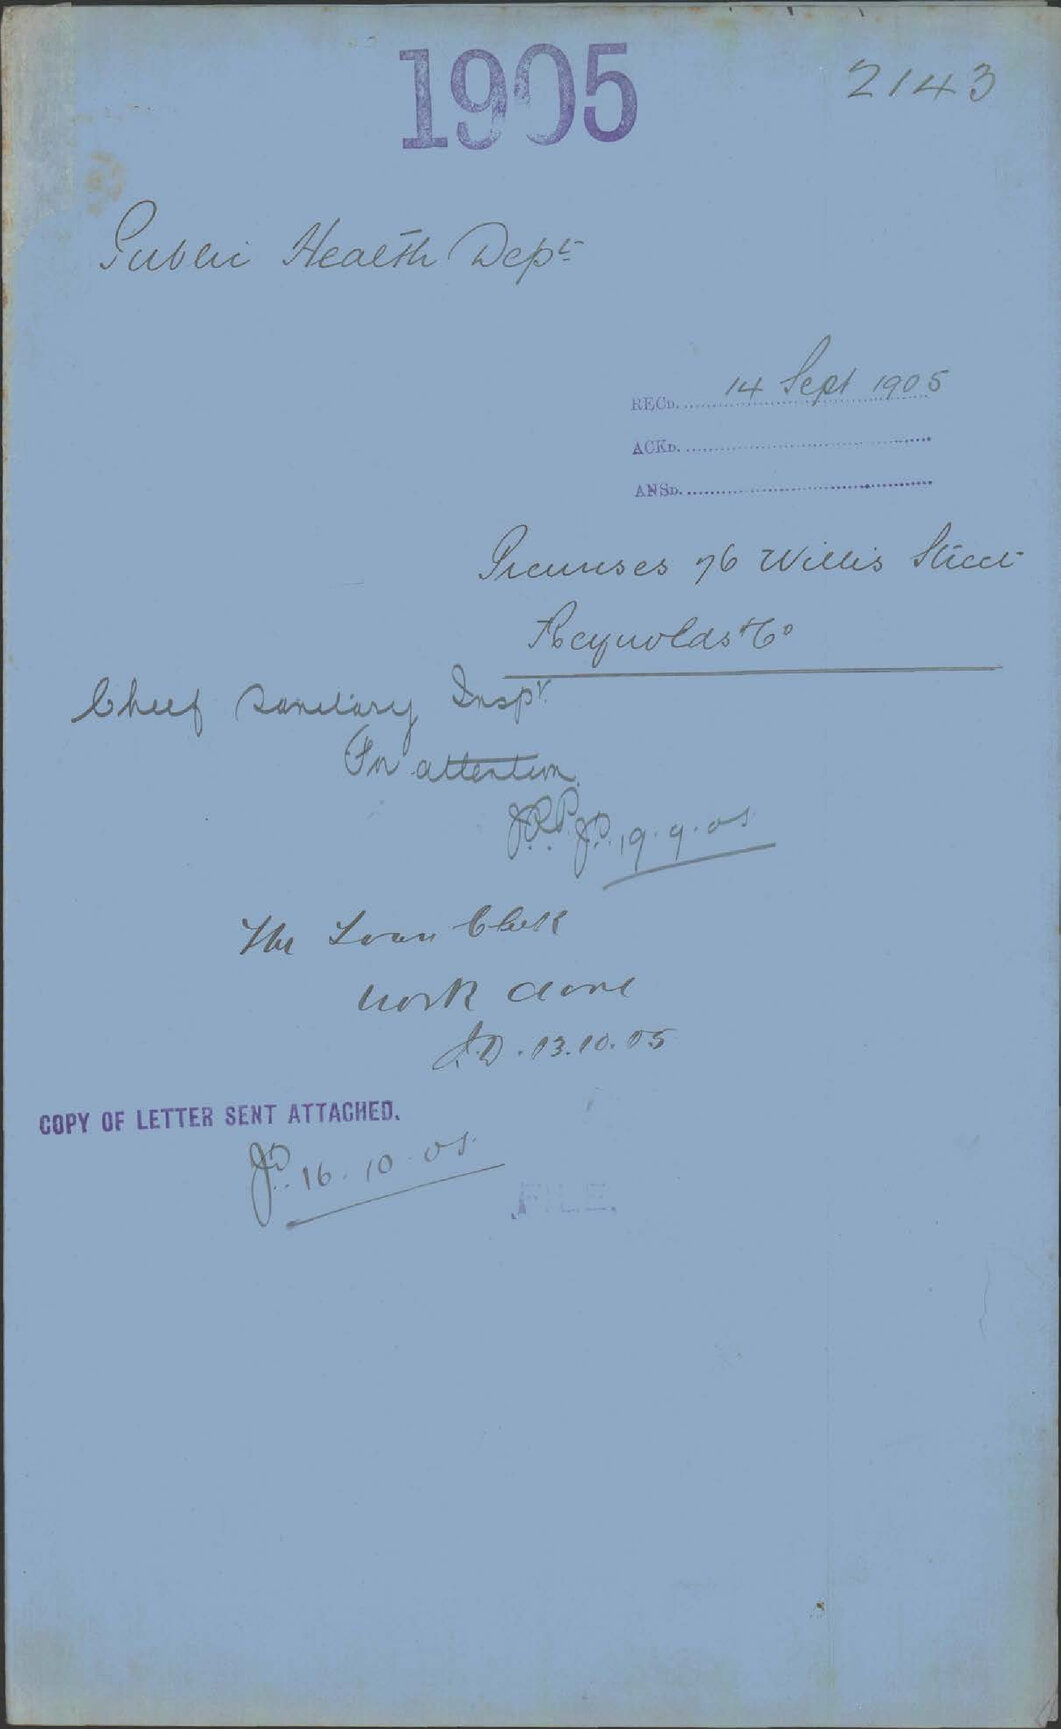 1905
2143
Public Health Dept
RECD. 14 Sept 1905
ACKD.
ANSD.
Premises 76 Willis Street
Reynolds & Co
Chief Sanitary Inspr.
For attention
J.P. 19.9.05
The Town Clerk
Work done
J.D. 13.10.05
COPY OF LETTER SENT ATTACHED.
J.P. 16.10.05
FILE.